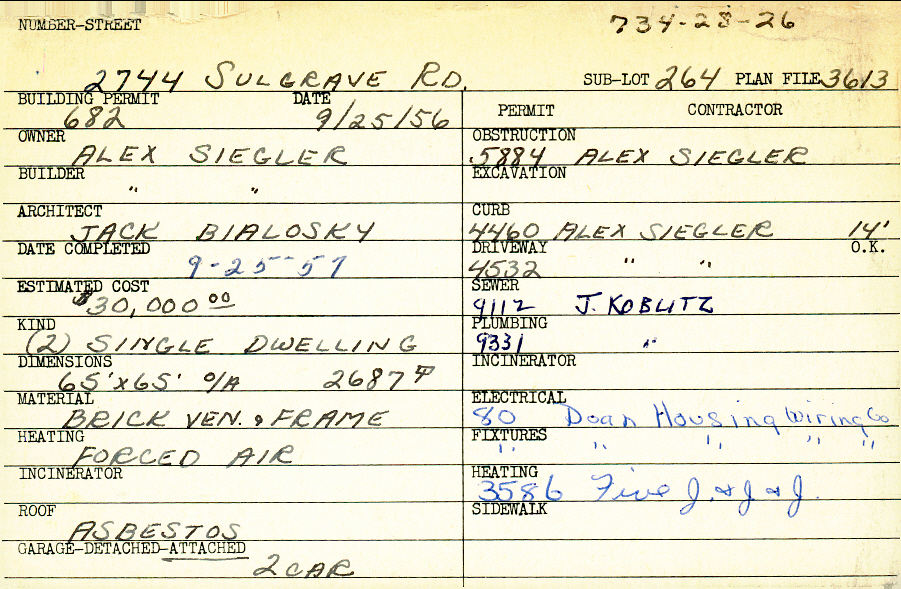 NUMBER-STREET 734-28-26
2744 SULGRAVE RD. SUB-LOT 264 PLAN FILE 3613
BUILDING PERMIT DATE
682 9/25/56
OWNER
ALEX SIEGLER
BUILDER
" "
ARCHITECT
JACK BIALOSKY
DATE COMPLETED
9-25-57
ESTIMATED COST
$30,000 00
KIND
(2) SINGLE DWELLING
DIMENSIONS
65'x65' O/A 2687
MATERIAL
BRICK VEN. & FRAME
HEATING
FORCED AIR
INCINERATOR
ROOF
ASBESTOS
GARAGE-DETACHED-ATTACHED
2 CAR
PERMIT CONTRACTOR
OBSTRUCTION
5884 ALEX SIEGLER
EXCAVATION
CURB
4460 ALEX SIEGLER 14'
DRIVEWAY O.K.
4532 " "
SEWER
9112 J. KOBLITZ
PLUMBING
9331 "
INCINERATOR
ELECTRICAL
80 Doan Housing Wiring Co
FIXTURES
" " " " "
HEATING
3586 Five J. & J. & J.
SIDEWALK